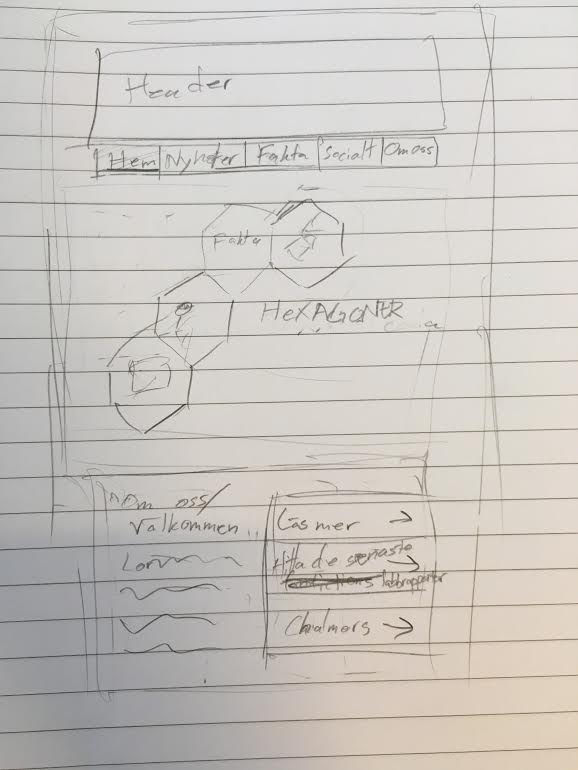 Header
Hem Nyheter Fakta Socialt Om oss
Fakta
HEXAGONER
Om oss/
Valkommen
Läs mer →
Lorem
Hitta de senaste
labbrapporter
Chalmers →